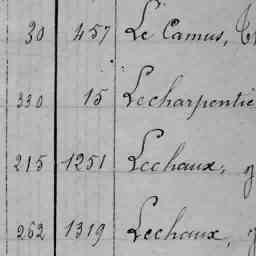 30 457 Le Camus,
330 15 Lecharpentie
215 1251 Lechaux,
262 1319 Lechaux,